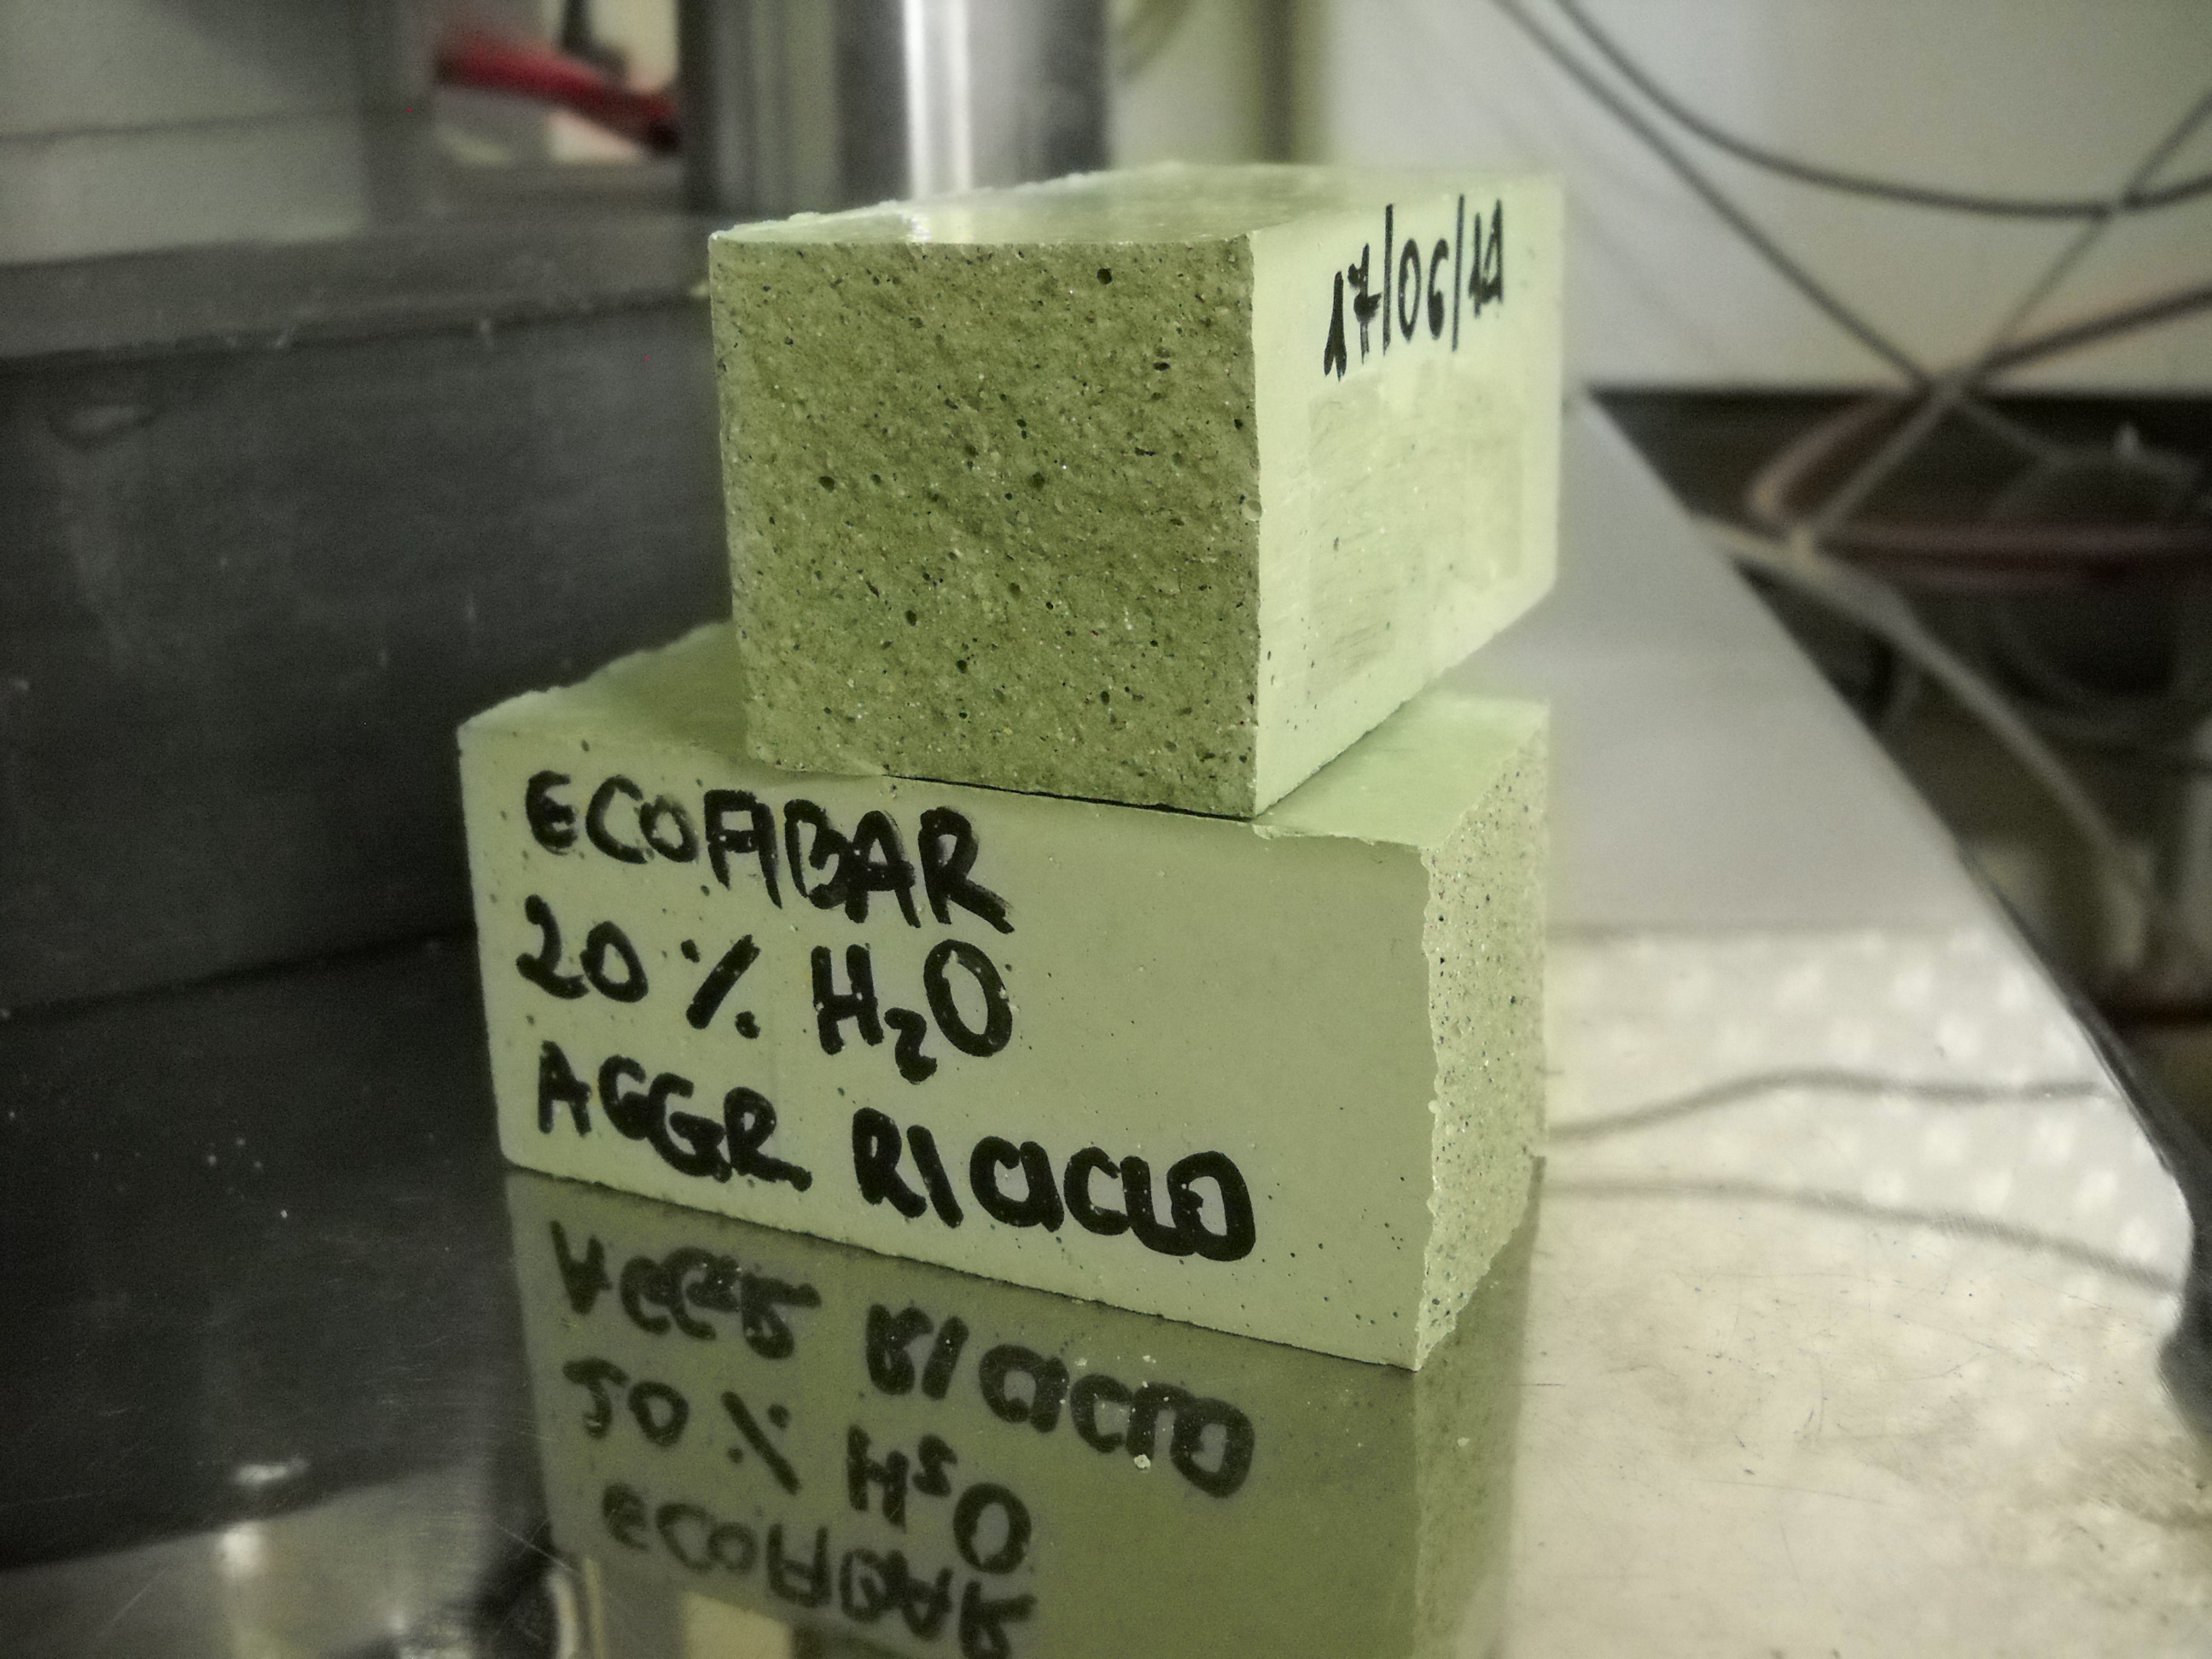 ECOFIBAR
20 % H₂O
AGGR RICICLO